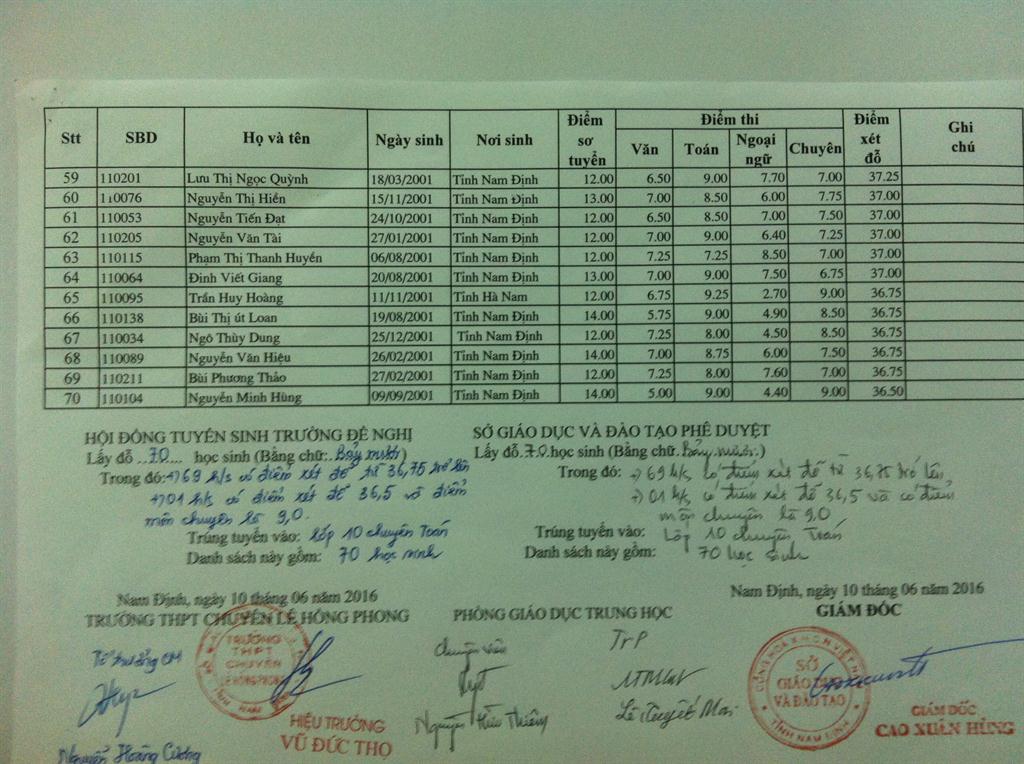 Stt SBD Họ và tên Ngày sinh Nơi sinh Điểm sơ tuyển Điểm thi Văn Toán Ngoại ngữ Chuyên Điểm xét đỗ Ghi chú
59 110201 Lưu Thị Ngọc Quỳnh 18/03/2001 Tỉnh Nam Định 12.00 6.50 9.00 7.70 7.00 37.25
60 110076 Nguyễn Thị Hiền 15/11/2001 Tỉnh Nam Định 13.00 7.00 8.50 6.00 7.75 37.00
61 110053 Nguyễn Tiến Đạt 24/10/2001 Tỉnh Nam Định 12.00 6.50 8.50 7.00 7.50 37.00
62 110205 Nguyễn Văn Tài 27/01/2001 Tỉnh Nam Định 12.00 7.00 9.00 6.40 7.25 37.00
63 110115 Phạm Thị Thanh Huyền 06/08/2001 Tỉnh Nam Định 12.00 7.25 7.25 8.50 7.00 37.00
64 110064 Đinh Viết Giang 20/08/2001 Tỉnh Nam Định 13.00 7.00 9.00 7.50 6.75 37.00
65 110095 Trần Huy Hoàng 11/11/2001 Tỉnh Hà Nam 12.00 6.75 9.25 2.70 9.00 36.75
66 110138 Bùi Thị út Loan 19/08/2001 Tỉnh Nam Định 14.00 5.75 9.00 4.90 8.50 36.75
67 110034 Ngô Thùy Dung 25/12/2001 Tỉnh Nam Định 12.00 7.25 8.00 4.50 8.50 36.75
68 110089 Nguyễn Văn Hiệu 26/02/2001 Tỉnh Nam Định 14.00 7.00 8.75 6.00 7.50 36.75
69 110211 Bùi Phương Thảo 27/02/2001 Tỉnh Nam Định 12.00 7.25 8.00 7.60 7.00 36.75
70 110104 Nguyễn Minh Hùng 09/09/2001 Tỉnh Nam Định 14.00 5.00 9.00 4.40 9.00 36.50
HỘI ĐỒNG TUYỂN SINH TRƯỜNG ĐỀ NGHỊ
Lấy đỗ ...70.... học sinh (Bằng chữ: Bảy mươi)
Trong đó: +) 69 h/s có điểm xét đỗ từ 36,75 trở lên
+) 01 h/s có điểm xét đỗ 36,5 và điểm
môn chuyên là 9,0.
Trúng tuyển vào: Lớp 10 chuyên Toán
Danh sách này gồm: 70 học sinh
SỞ GIÁO DỤC VÀ ĐÀO TẠO PHÊ DUYỆT
Lấy đỗ.70.học sinh (Bằng chữ: bảy mươi.)
Trong đó: +) 69 h/s có điểm xét đỗ từ 36,75 trở lên,
+) 01 h/s có điểm xét đỗ 36,5 và có điểm
môn chuyên là 9,0
Trúng tuyển vào: Lớp 10 chuyên Toán
Danh sách này gồm: 70 học sinh
Nam Định, ngày 10 tháng 06 năm 2016
TRƯỜNG THPT CHUYÊN LÊ HỒNG PHONG
Tổ trưởng CM
TRƯỜNG
THPT
CHUYÊN
LÊ HỒNG PHONG
HIỆU TRƯỞNG
VŨ ĐỨC THỌ
Nguyễn Hoàng Cương
PHÒNG GIÁO DỤC TRUNG HỌC
Chuyên viên
Nguyễn Hữu Thiêm
TrP
Lê Tuyết Mai
Nam Định, ngày 10 tháng 06 năm 2016
GIÁM ĐỐC
CỘNG HÒA X.H.C.N VIỆT NAM
SỞ
GIÁO DỤC
VÀ ĐÀO TẠO
TỈNH NAM ĐỊNH
GIÁM ĐỐC
CAO XUÂN HÙNG